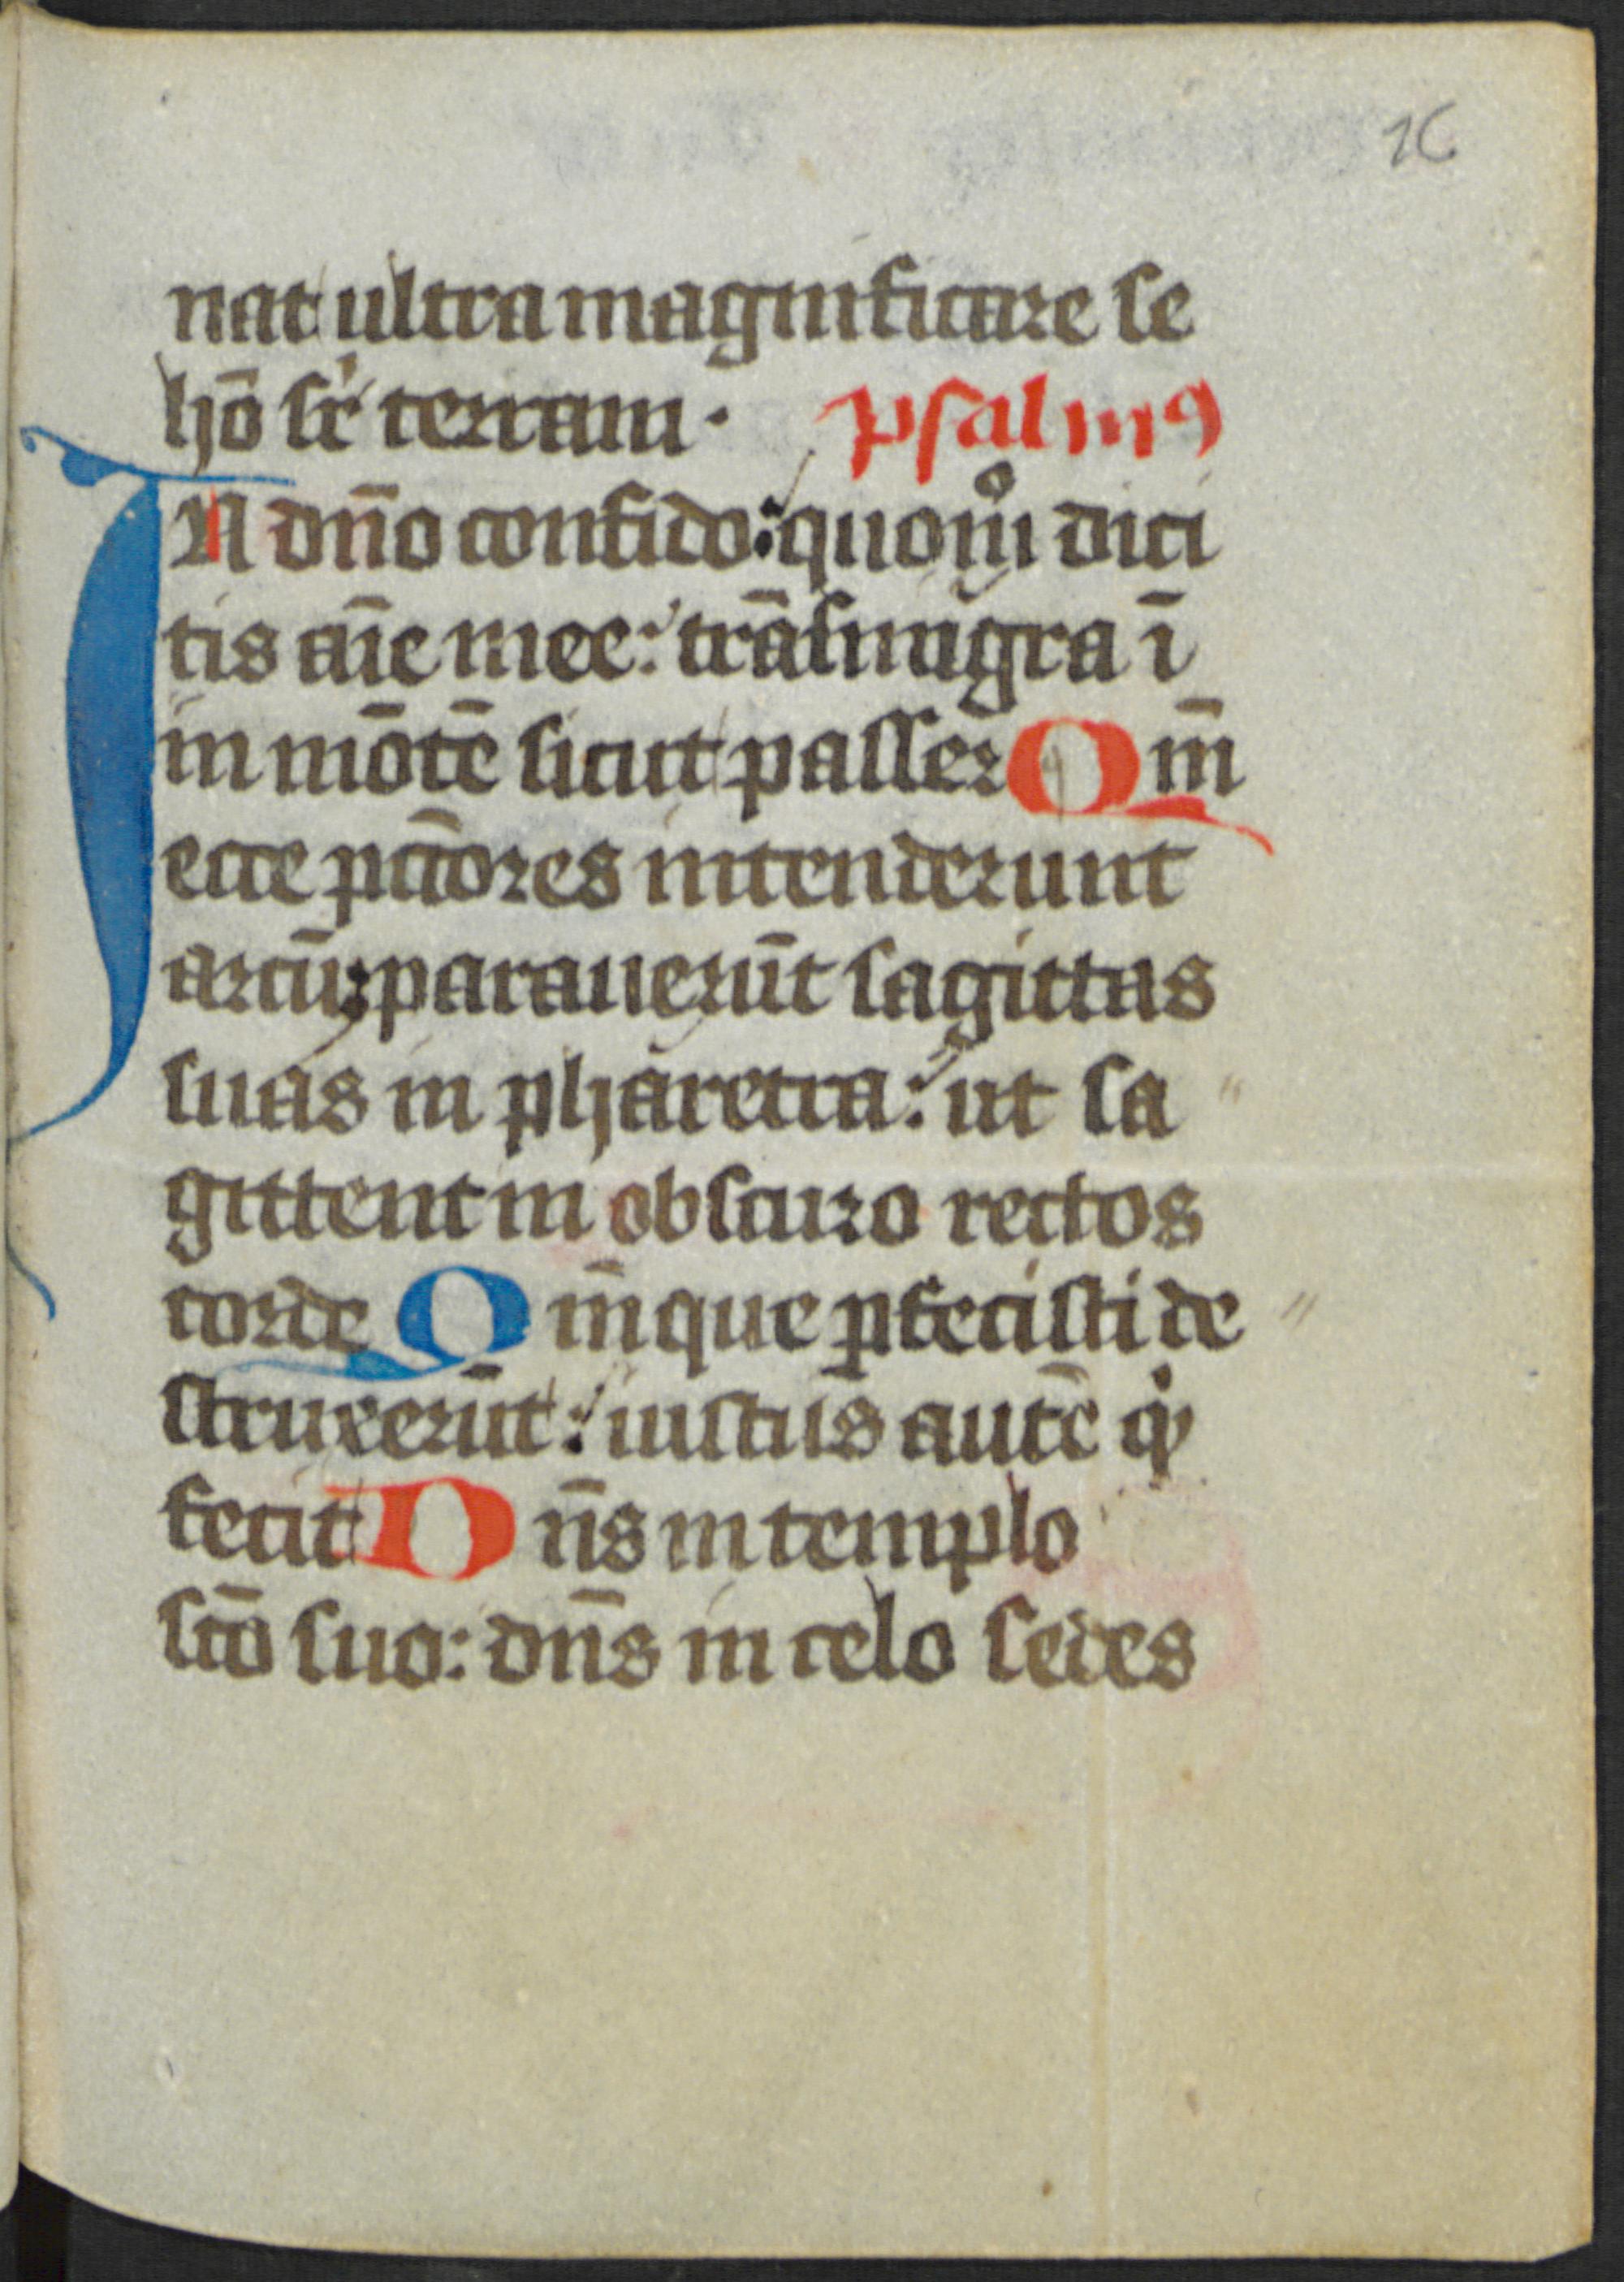 16
nat ultra magnificare se
hō sr̄ terram · psalmꝰ
IN dn̄o confido : quom̊ dici
tis aīe mee : trāsmigra ī
in mōtē sicut passer Qm̄
ecce pc̄tores intenderunt
arcū parauerūt sagittas
suas in pharetra : ut sa
gittent in obscuro rectos
corde Qm̄ que ꝑfecisti de
struxerūt : iustus autē qͥ
fecit Dn̄s in templo
sc̄o suo : dn̄s in celo sedes